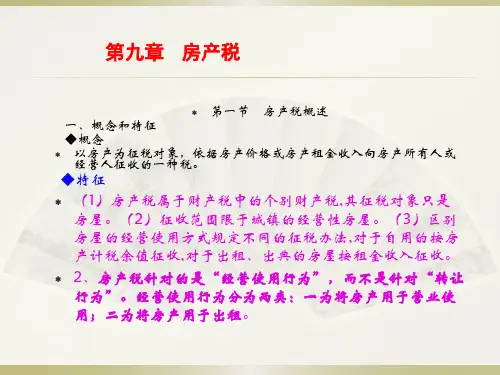 第九章 房产税
* 第一节 房产税概述
一、概念和特征
◆概念
* 以房产为征税对象，依据房产价格或房产租金收入向房产所有人或
经营人征收的一种税。
◆特征
* （1）房产税属于财产税中的个别财产税,其征税对象只是
房屋。（2）征收范围限于城镇的经营性房屋。（3）区别
房屋的经营使用方式规定不同的征税办法,对于自用的按房
产计税余值征收,对于出租、出典的房屋按租金收入征收。
* 2、房产税针对的是“经营使用行为”，而不是针对“转让
行为”。经营使用行为分为两类：一为将房产用于营业使
用；二为将房产用于出租。